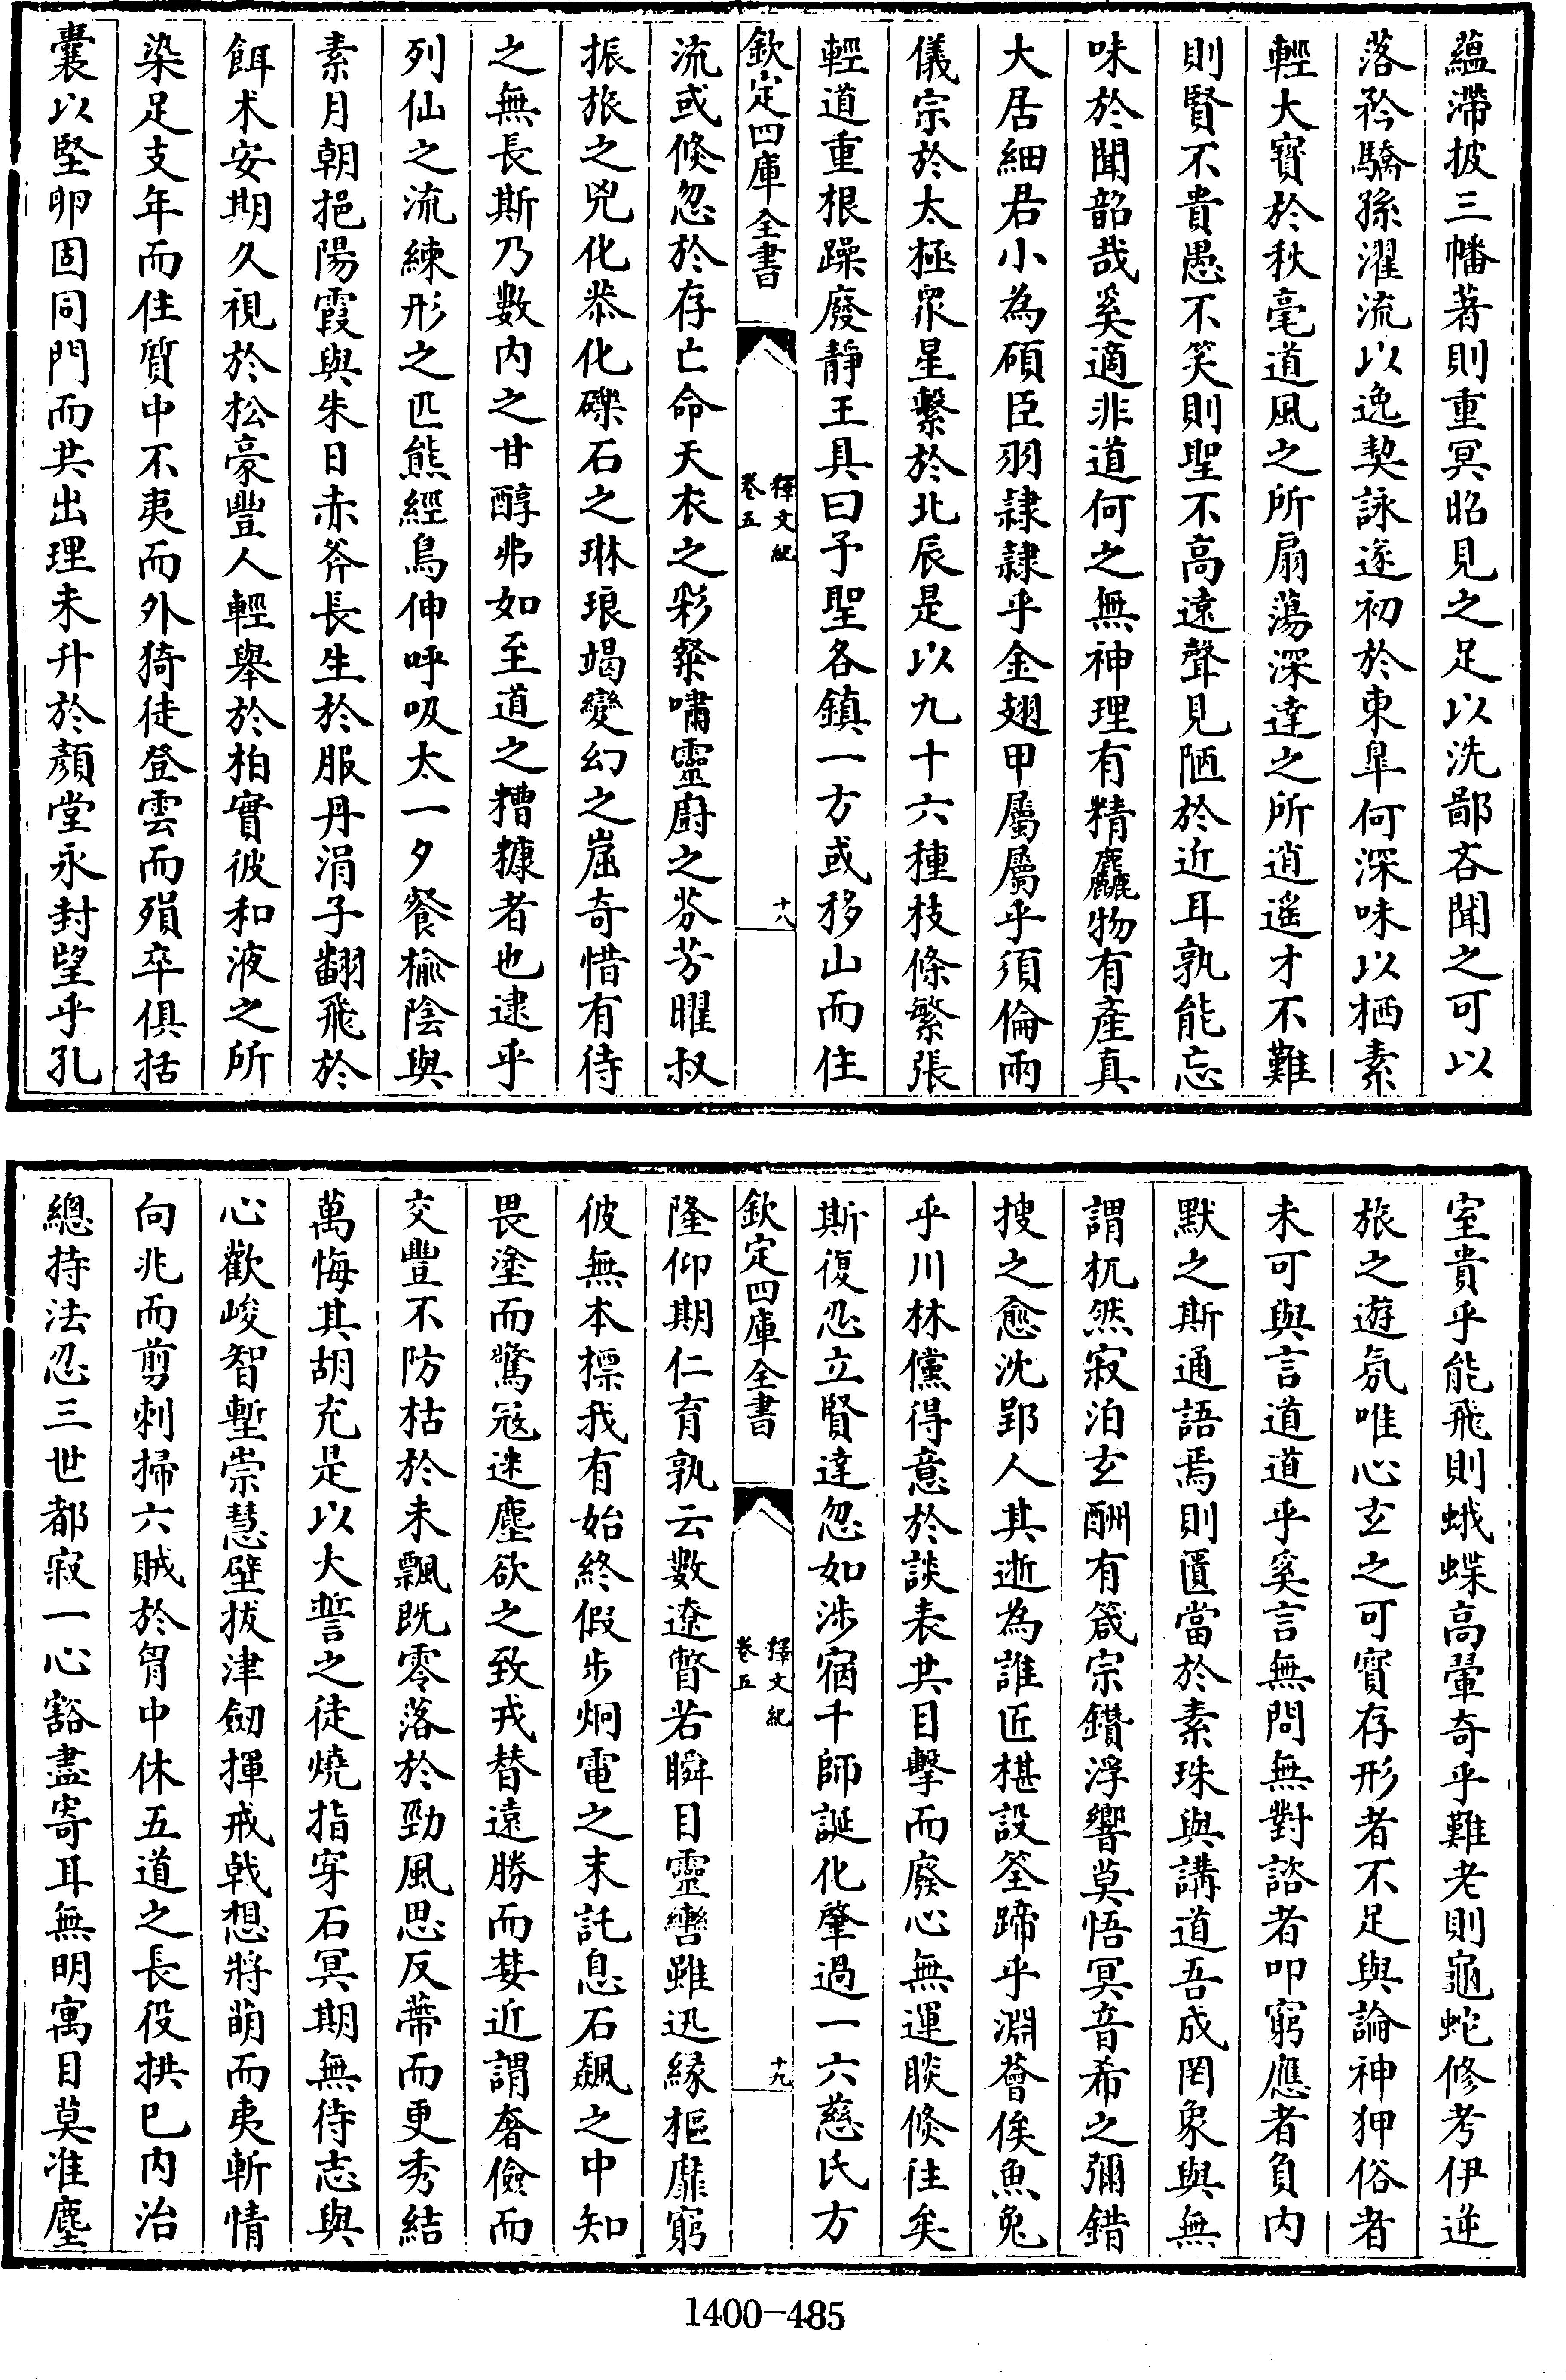 蘊滯披三幡著則重冥昭見之足以洗鄙吝聞之可以
落矜驕孫濯流以逸契詠遂初於東臯何深味以栖素
輕大寳於秋毫道風之所扇蕩深達之所逍遙才不難
則賢不貴愚不笑則聖不高遠聲見陋於近耳孰能忘
味於聞韶哉奚適非道何之無神理有精麤物有產真
大居細君小為碩臣羽隷隷乎金翅甲屬屬乎須倫兩
儀宗於太極衆星繫於北辰是以九十六種枝條繁張
輕道重根躁廢靜王具曰予聖各鎮一方或移山而住
欽定四庫全書
釋文紀
卷五
十八
流或倐忽於存亡命天衣之彩粲嘯靈廚之芬芳曜叔
振旅之兇化恭化礫石之琳琅竭變幻之崫奇惜有待
之無長斯乃數內之甘醇弗如至道之糟糠者也逮乎
列仙之流練形之匹熊經鳥伸呼吸太一夕餐榆陰與
素月朝挹陽霞與朱日赤斧長生於服丹涓子翻飛於
餌术安期久視於松豪豐人輕舉於柏實彼和液之所
染足支年而住質中不夷而外猗徒登雲而殞卒俱括
囊以堅卵固同門而共出理未升於顏堂永封望乎孔
室貴乎能飛則蛾蝶高翬奇乎難老則龜蛇修考伊逆
旅之遊氛唯心玄之可寳存形者不足與論神狎俗者
未可與言道道乎奚言無問無對諮者叩窮應者負內
默之斯通語焉則匱當於素珠與講道吾成罔象與無
謂杌然寂泊玄酬有箴宗鑽浮響莫悟冥音希之彌錯
搜之愈沈郢人其逝為誰匠椹設筌蹄乎淵薈俟魚兔
乎川林儻得意於談表共目擊而廢心無運睒倐往矣
斯復忍立賢達忽如涉宿千師誕化肇過一六慈氏方
欽定四庫全書
釋文紀
卷五
十九
隆仰期仁育孰云數遼瞥若瞬目靈轡雖迅緣樞靡窮
彼無本摽我有始終假步炯電之末託息石飆之中知
畏塗而驚寇迷塵欲之致戎替遠勝而婪近謂奢儉而
交豐不防枯於未飄既零落於勁風思反蔕而更秀結
萬悔其胡充是以大誓之徒燒指穿石冥期無待志與
心歡峻智塹崇慧壁拔津劒揮戒戟想將萌而夷斬情
向兆而剪刺掃六賊於胷中休五道之長役拱已內治
總持法忍三世都寂一心豁盡寄耳無明寓目莫准塵
1400-485